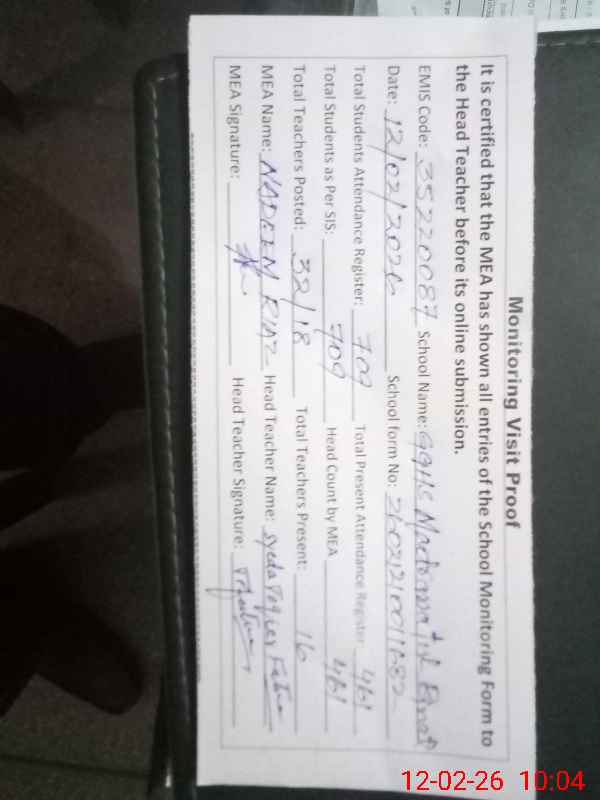 Monitoring Visit Proof
It is certified that the MEA has shown all entries of the School Monitoring Form to
the Head Teacher before its online submission.
EMIS Code: 35220087 School Name: GGHS
Date: 12/02/2026 School form No:
Total Students Attendance Register: 709 Total Present Attendance Register 461
Total Students as Per SIS: 709 Head Count by MEA 461
Total Teachers Posted: 32/18 Total Teachers Present: 16
MEA Name: NADEEM RIAZ Head Teacher Name: Syeda
MEA Signature: Head Teacher Signature:
12-02-26 10:04